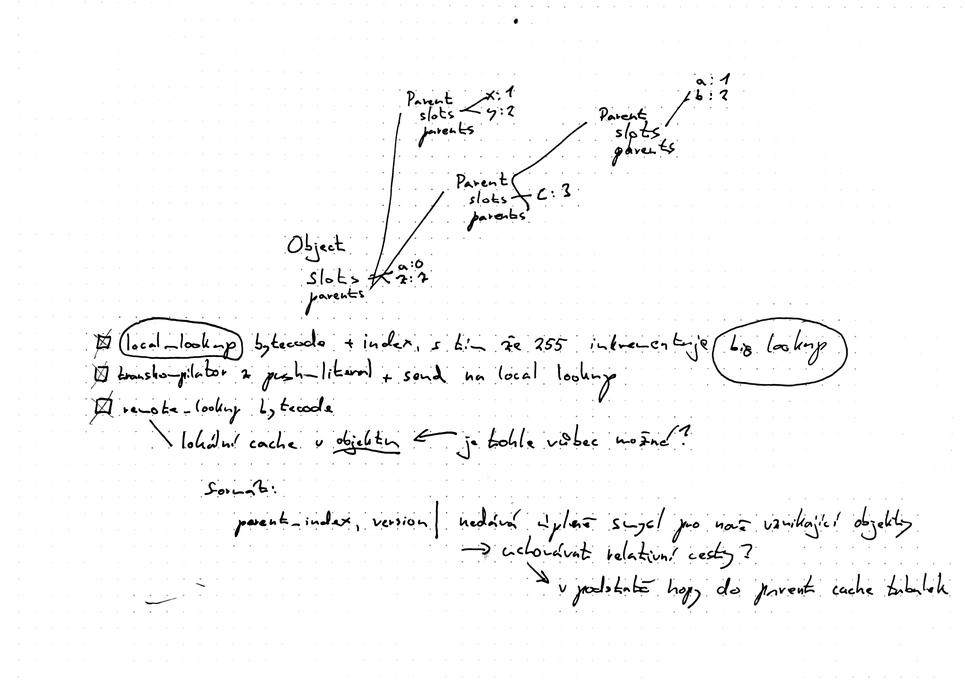 a: 1
b: 2
Parent
slots
parents
x: 1
y: 2
Parent
slots
parents
Parent
slots
parents
c: 3
Object
slots
parents
a: 0
z: 2
local_lookup bytecode + index, s tím že 255 inkrementuje big lookup
transkompilátor z push_literal + send na local lookup
remote_lookup bytecode
lokální cache v objektu ← je tohle vůbec možné?
formát:
parent_index, version | nedává úplně smysl pro nově vznikající objekty
→ uchovávat relativní cesty?
v podstatě hopy do parent cache tabulek